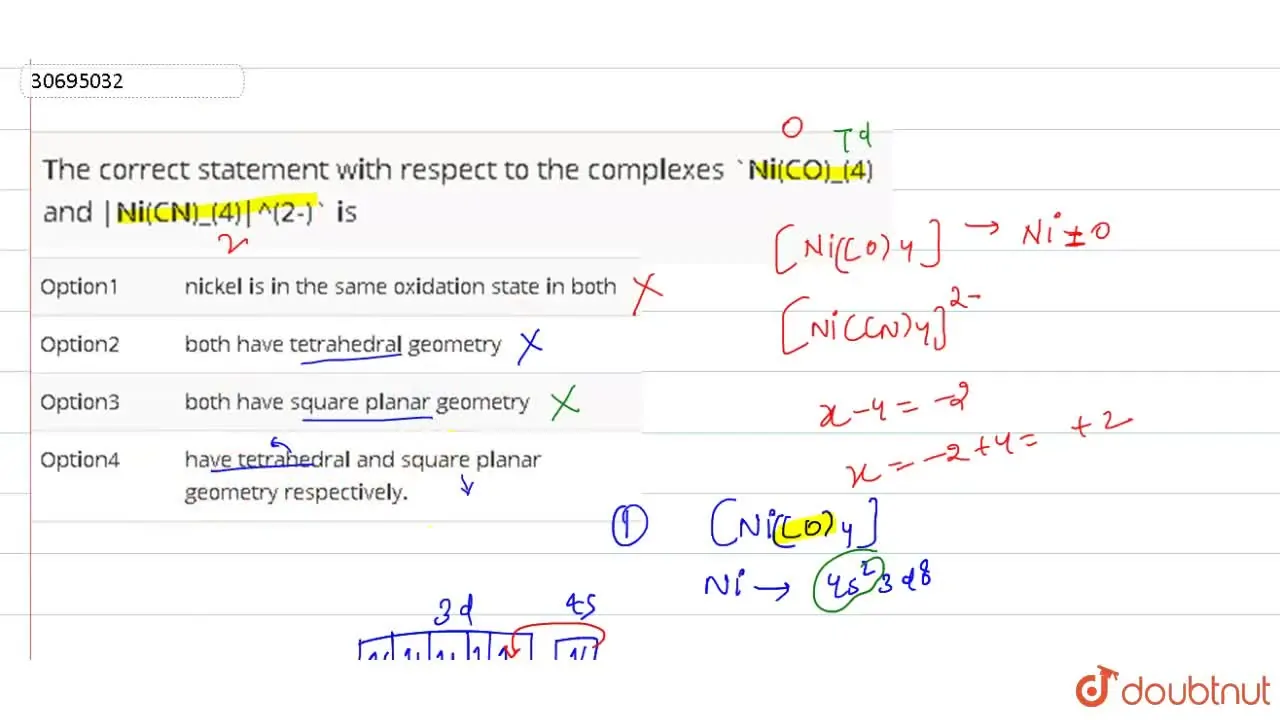 30695032
O Td
The correct statement with respect to the complexes `Ni(CO)_(4)
and |Ni(CN)_(4)|^(2-)` is
2
[Ni(CO)4] → Ni ± 0
Option1 nickel is in the same oxidation state in both X
[Ni(CN)4]2-
Option2 both have tetrahedral geometry X
Option3 both have square planar geometry X
x-4 = -2
x = -2+4 = +2
Option4 have tetrahedral and square planar
geometry respectively.
1 [Ni(CO)4]
Ni → 4s2 3d8
3d 4s
doubtnut